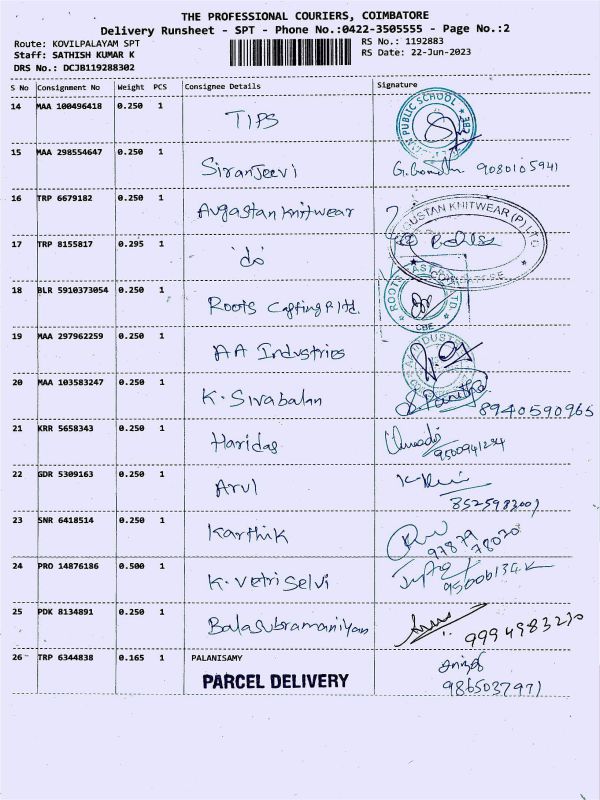 THE PROFESSIONAL COURIERS, COIMBATORE
Delivery Runsheet - SPT - Phone No.:0422-3505555 - Page No.:2
Route: KOVILPALAYAM SPT
RS No.: 1192883
Staff: SATHISH KUMAR K
RS Date: 22-Jun-2023
DRS No.: DCJB119288302
S No Consignment No Weight PCS Consignee Details Signature
14 MAA 100496418 0.250 1 TIPS
PUBLIC SCHOOL CBE
15 MAA 298554647 0.250 1 Siranjeevi 9080105941
16 TRP 6679182 0.250 1 Avgastan Knitwear
GUSTAN KNITWEAR (P) LTD
17 TRP 8155817 0.295 1 do
18 BLR 5910373054 0.250 1 Roots Casting P ltd.
ROOTS CAST LTD CBE
19 MAA 297962259 0.250 1 AA Industries
AA INDUST
20 MAA 103583247 0.250 1 K. Sivabalan 8940590965
21 KRR 5658343 0.250 1 Haridas 9500941234
22 GDR 5309163 0.250 1 Arul 8525983001
23 SNR 6418514 0.250 1 Karthik 97879 78020
24 PRO 14876186 0.500 1 K. Vetri Selvi
25 PDK 8134891 0.250 1 Balasubramaniyan 9994983230
26 TRP 6344838 0.165 1 PALANISAMY
PARCEL DELIVERY 9865037971